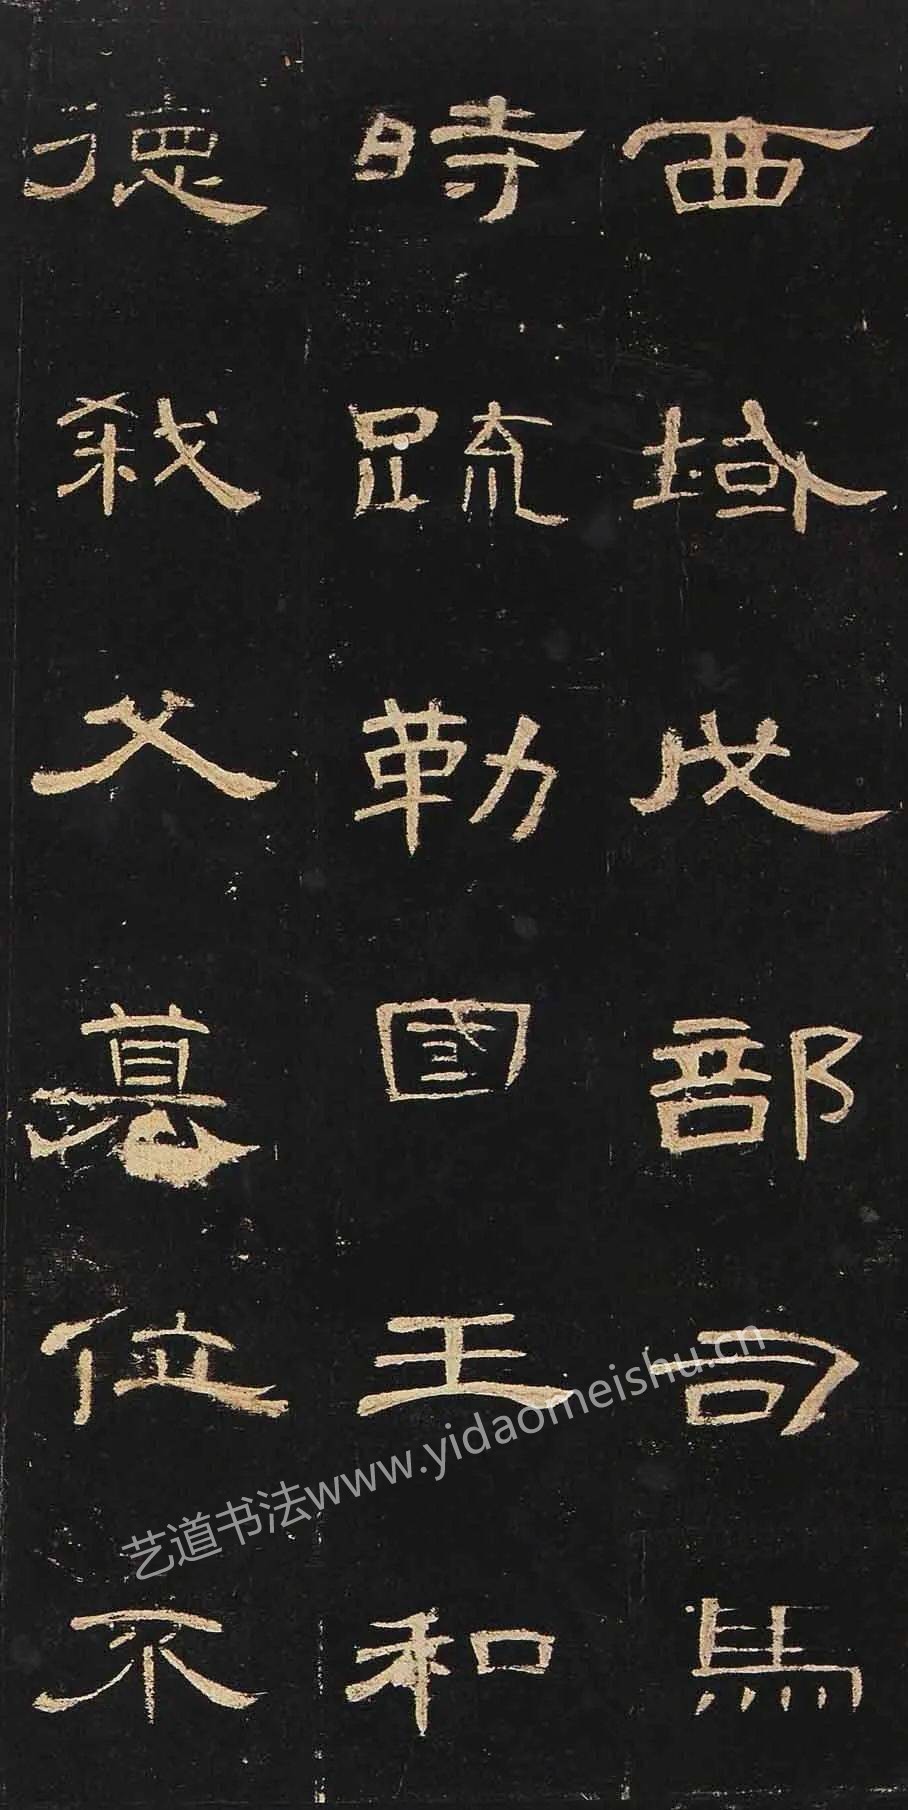 西域戊部司馬
時疏勒國王和
德弒父篡位不
艺道书法www.yidaomeishu.cn